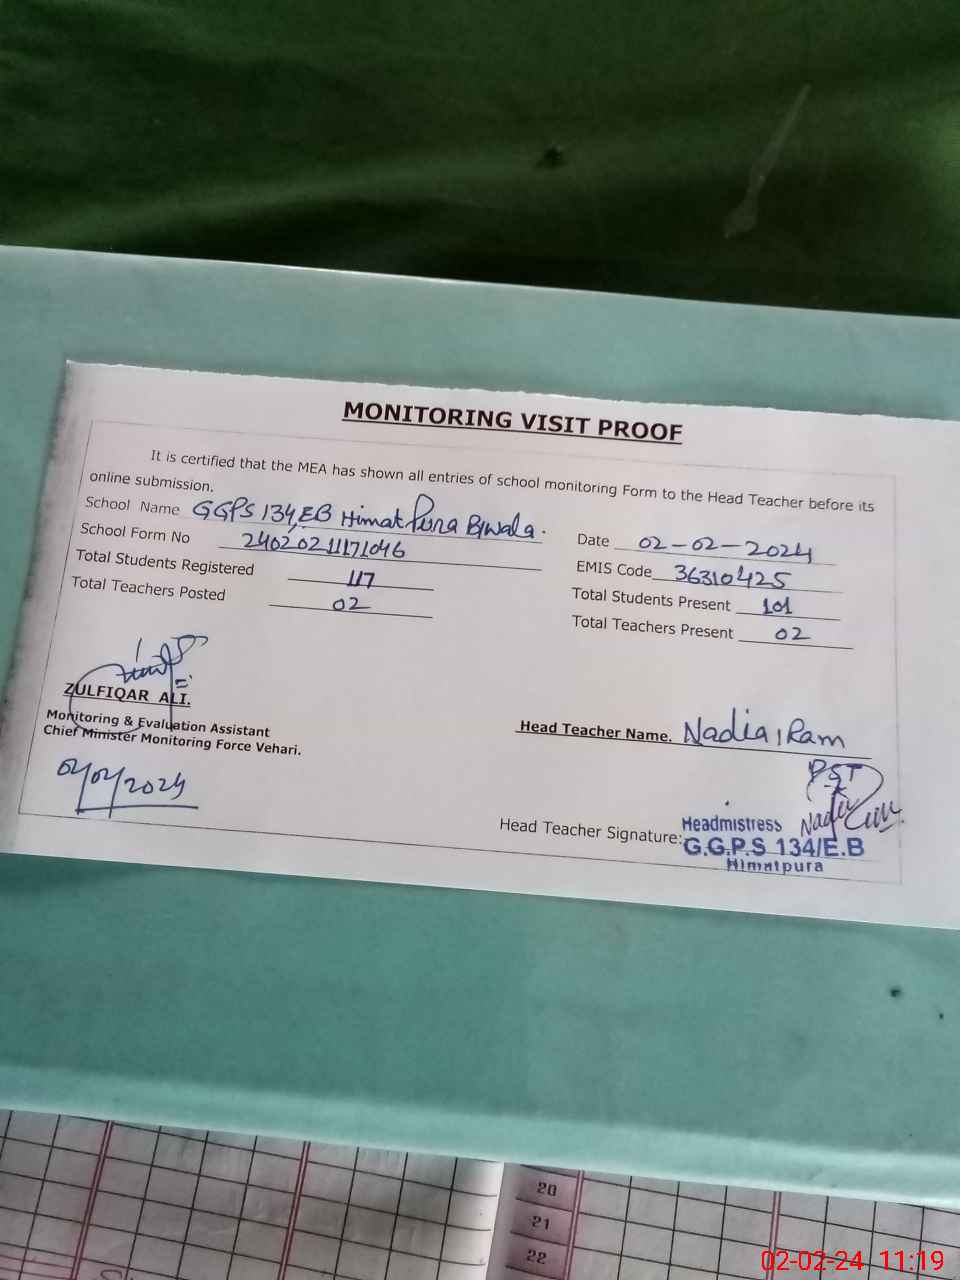 MONITORING VISIT PROOF
It is certified that the MEA has shown all entries of school monitoring Form to the Head Teacher before its
online submission.
School Name GGPS 134/EB Himat Pura B/wala.
Date 02-02-2024
School Form No 24020211171046
EMIS Code 36310425
Total Students Registered 117
Total Students Present 101
Total Teachers Posted 02
Total Teachers Present 02
ZULFIQAR ALI.
Monitoring & Evaluation Assistant
Chief Minister Monitoring Force Vehari.
02/02/2024
Head Teacher Name. Nadia Iram
PST
Head Teacher Signature:
Headmistress
G.G.P.S 134/E.B
Himatpura
20
21
22
02-02-24 11:19